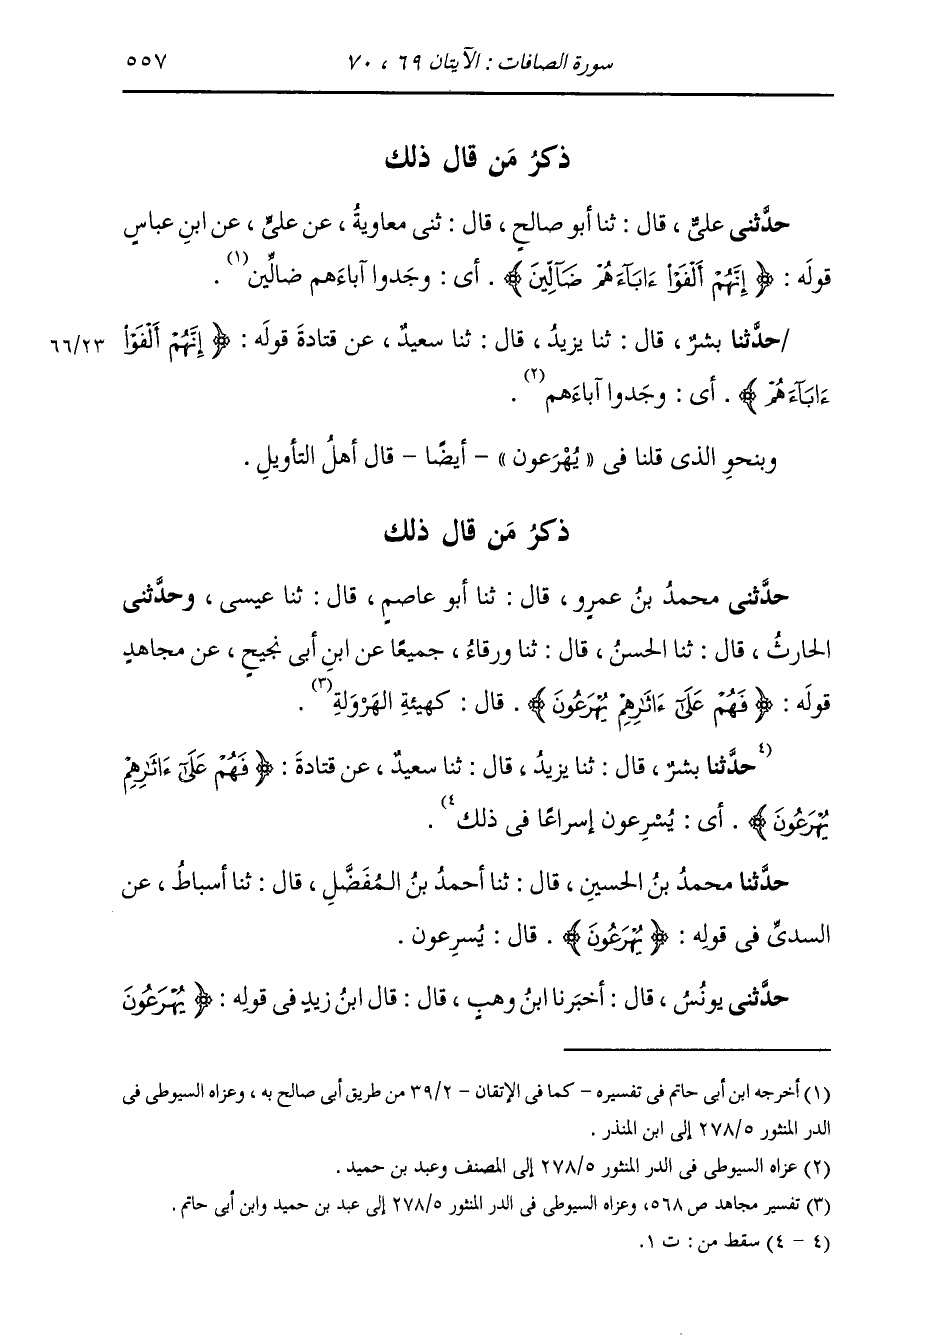 سورة الصافات : الآيتان ٦٩ ، ٧٠ ٥٥٧
ذكرُ مَن قال ذلك
حدَّثنى علىٌّ ، قال : ثنا أبو صالحٍ ، قال : ثنى معاويةُ ، عن علىٍّ ، عن ابنِ عباسٍ
قولَه : ﴿ إِنَّهُمْ أَلْفَوْا۟ ءَابَآءَهُمْ ضَآلِّينَ ﴾ . أى : وجَدوا آباءَهم ضالِّين(١) .
/حدَّثنا بشرٌ ، قال : ثنا يزيدُ ، قال : ثنا سعيدٌ ، عن قتادةَ قولَه : ﴿ إِنَّهُمْ أَلْفَوْا۟ ٦٦/٢٣
ءَابَآءَهُمْ ﴾ . أى : وجَدوا آباءَهم(٢) .
وبنحوِ الذى قلنا فى « يُهْرَعون » – أيضًا – قال أهلُ التأويلِ .
ذكرُ مَن قال ذلك
حدَّثنى محمدُ بنُ عمرٍو ، قال : ثنا أبو عاصمٍ ، قال : ثنا عيسى ، وحدَّثنى
الحارثُ ، قال : ثنا الحسنُ ، قال : ثنا ورقاءُ ، جميعًا عن ابنِ أبى نجيحٍ ، عن مجاهدٍ
قولَه : ﴿ فَهُمْ عَلَىٰٓ ءَاثَٰرِهِمْ يُهْرَعُونَ ﴾ . قال : كهيئةِ الهَرْوَلةِ(٣) .
(٤حدَّثنا بشرٌ ، قال : ثنا يزيدُ ، قال : ثنا سعيدٌ ، عن قتادةَ : ﴿ فَهُمْ عَلَىٰٓ ءَاثَٰرِهِمْ
يُهْرَعُونَ ﴾ . أى : يُسْرِعون إسراعًا فى ذلك٤) .
حدَّثنا محمدُ بنُ الحسينِ ، قال : ثنا أحمدُ بنُ المُفَضَّلِ ، قال : ثنا أسباطُ ، عن
السدىِّ فى قولِه : ﴿ يُهْرَعُونَ ﴾ . قال : يُسرِعون .
حدَّثنى يونُسُ ، قال : أخبَرنا ابنُ وهبٍ ، قال : قال ابنُ زيدٍ فى قولِه : ﴿ يُهْرَعُونَ
(١) أخرجه ابن أبى حاتم فى تفسيره – كما فى الإتقان – ٣٩/٢ من طريق أبى صالح به ، وعزاه السيوطى فى
الدر المنثور ٢٧٨/٥ إلى ابن المنذر .
(٢) عزاه السيوطى فى الدر المنثور ٢٧٨/٥ إلى المصنف وعبد بن حميد .
(٣) تفسير مجاهد ص ٥٦٨، وعزاه السيوطى فى الدر المنثور ٢٧٨/٥ إلى عبد بن حميد وابن أبى حاتم .
(٤ – ٤) سقط من : ت ١.